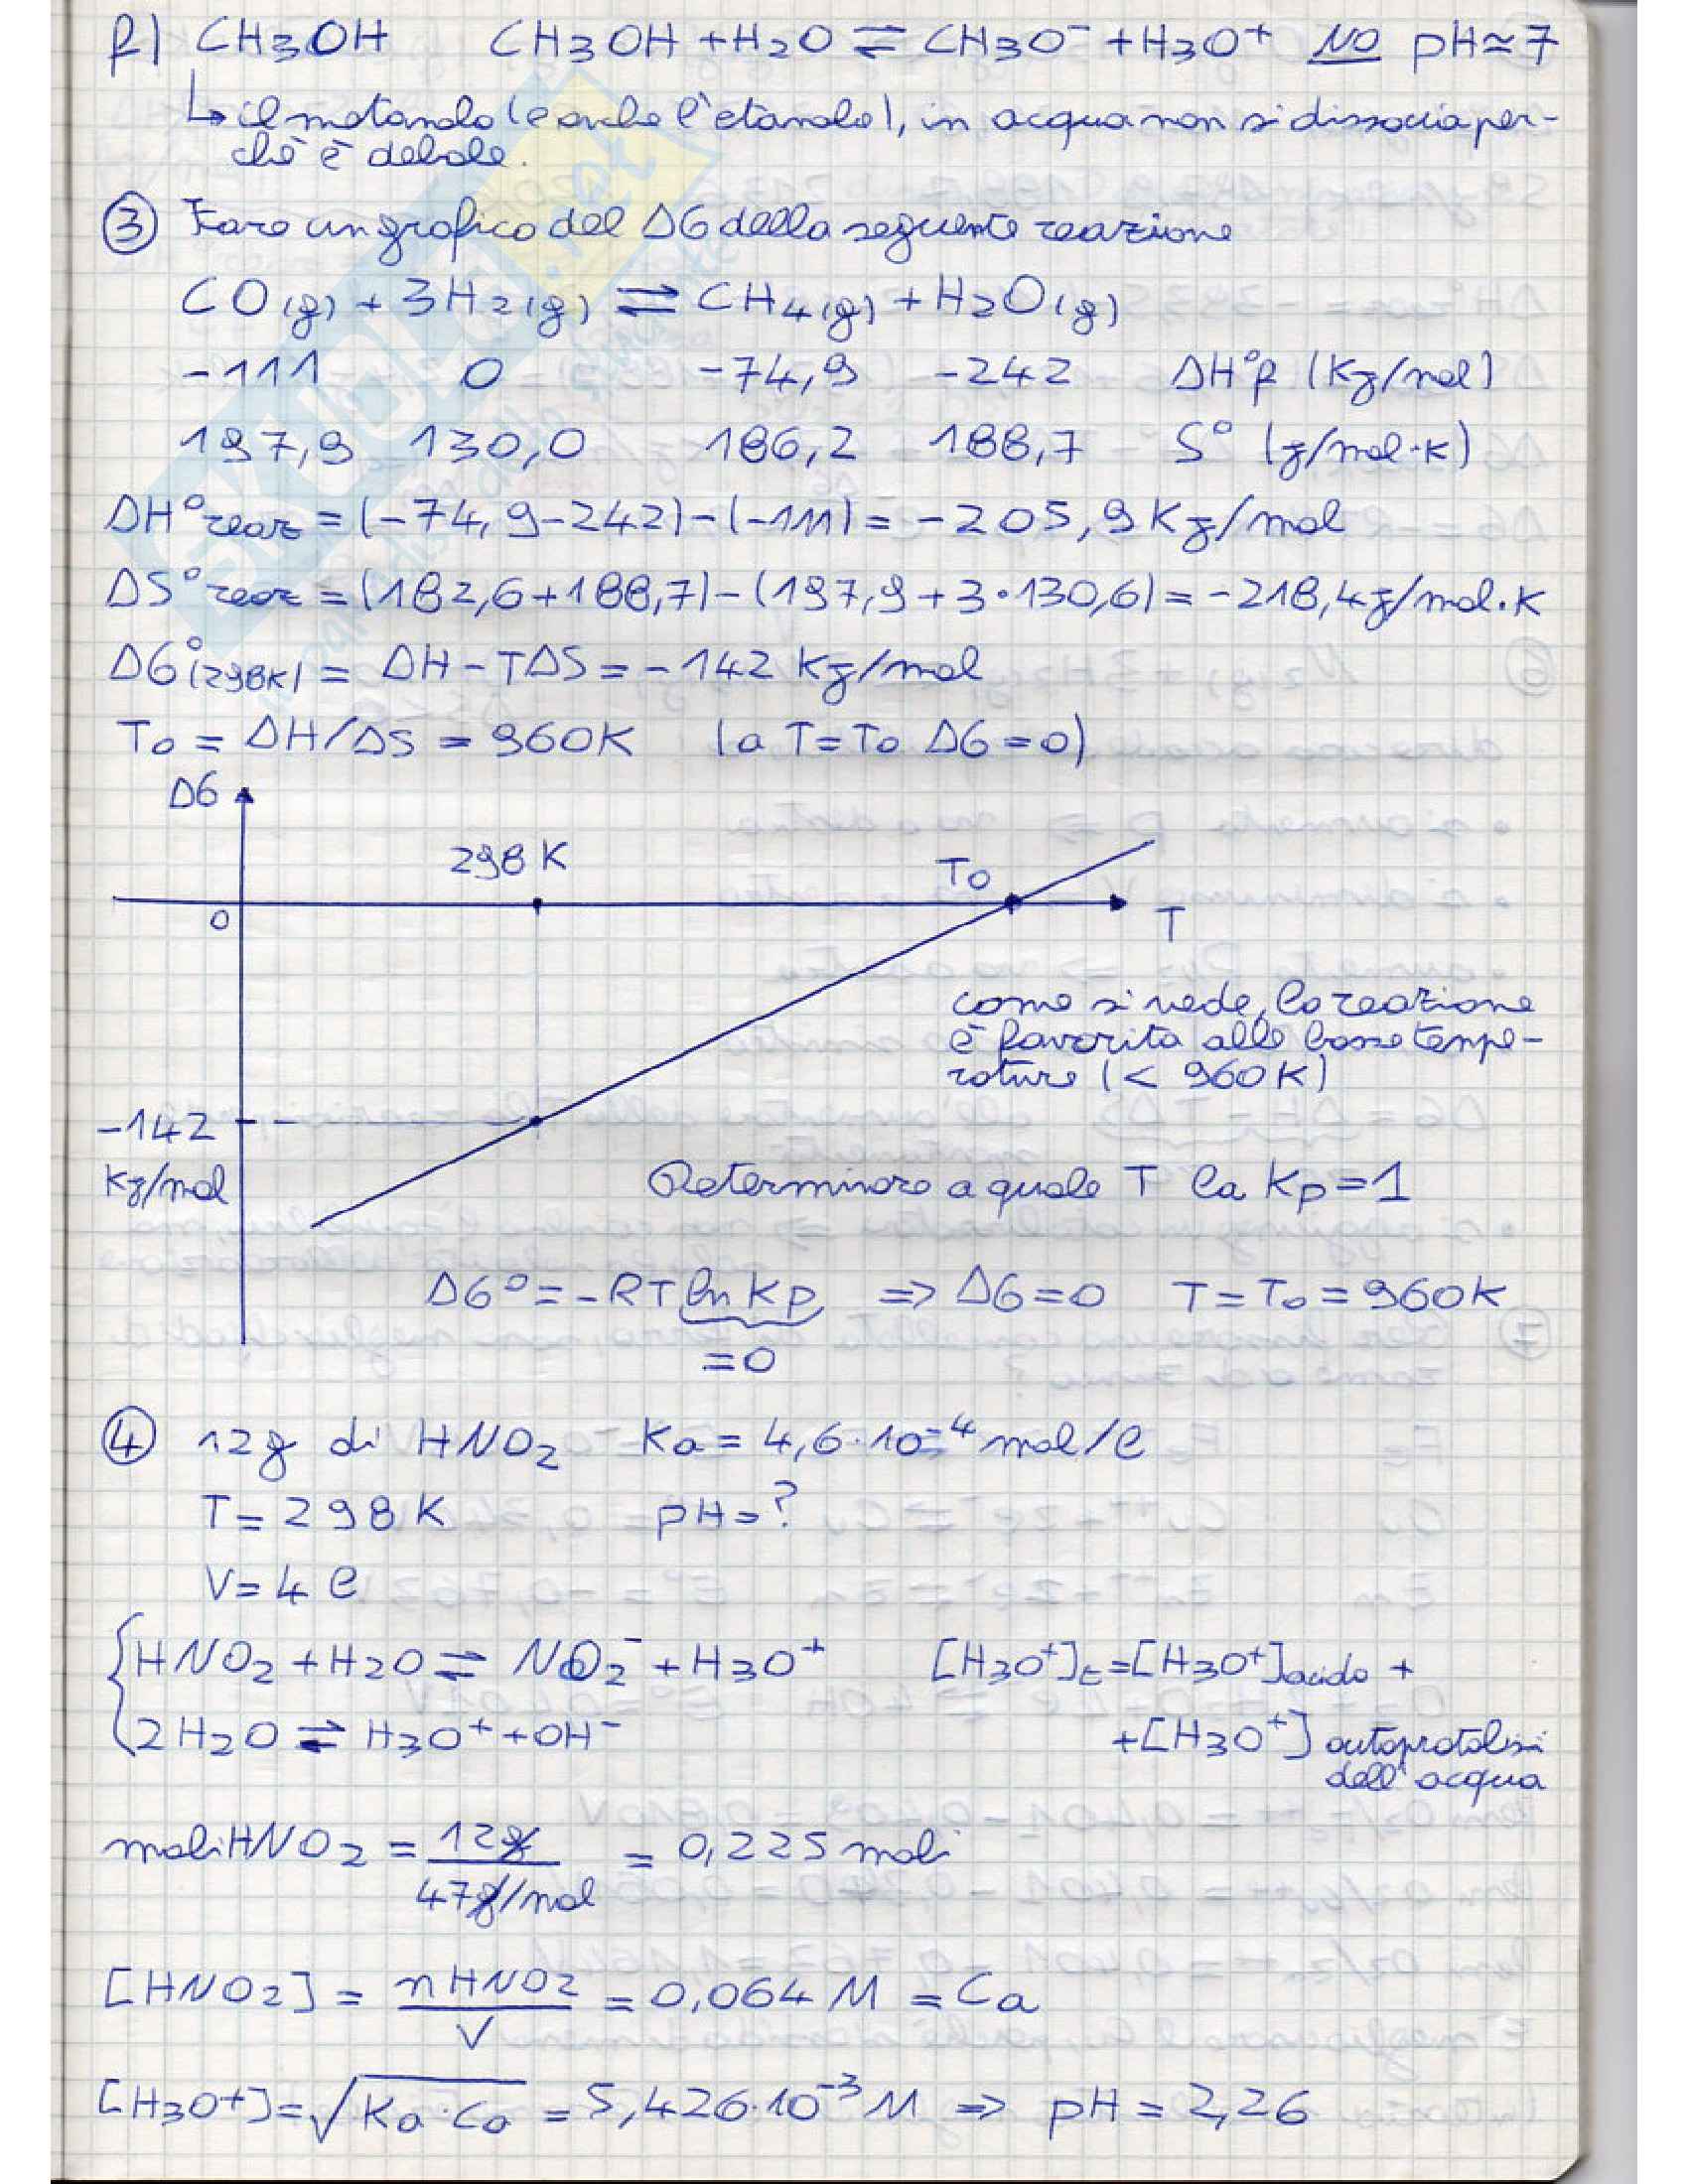 f) CH3OH CH3OH + H2O ⇌ CH3O⁻ + H3O⁺ NO pH≃7
↳ il metanolo (e anche l'etanolo), in acqua non si dissocia per-
chè è debole.
③ Fare un grafico del ΔG della seguente reazione
CO(g) + 3H2(g) ⇌ CH4(g) + H2O(g)
-111 0 -74,9 -242 ΔH°f (KJ/mol)
197,9 130,0 186,2 188,7 S° (J/mol·K)
ΔH°reaz = (-74,9-242)-(-111) = -205,9 KJ/mol
ΔS°reaz = (182,6+188,7)-(197,9+3·130,6) = -218,4 J/mol·K
ΔG°(298K) = ΔH-TΔS = -142 KJ/mol
T0 = ΔH/ΔS = 960K (a T=T0 ΔG=0)
ΔG
298 K T0
0 T
come si vede, la reazione
è favorita alle basse tempe-
rature (< 960K)
-142
KJ/mol
Determinare a quale T la Kp=1
ΔG° = -RT ln Kp ⇒ ΔG=0 T=T0=960K
=0
④ 12g di HNO2 Ka = 4,6·10⁻⁴ mol/l
T= 298 K pH=?
V= 4 l
HNO2 + H2O ⇌ NO2⁻ + H3O⁺ [H3O⁺]t=[H3O⁺]acido +
2H2O ⇌ H3O⁺ + OH⁻ +[H3O⁺] autoprotolisi
dell'acqua
moli HNO2 = 12g / 47g/mol = 0,225 moli
[HNO2] = nHNO2 / V = 0,064 M = Ca
[H3O⁺] = √Ka·Ca = 5,426·10⁻³ M ⇒ pH = 2,26